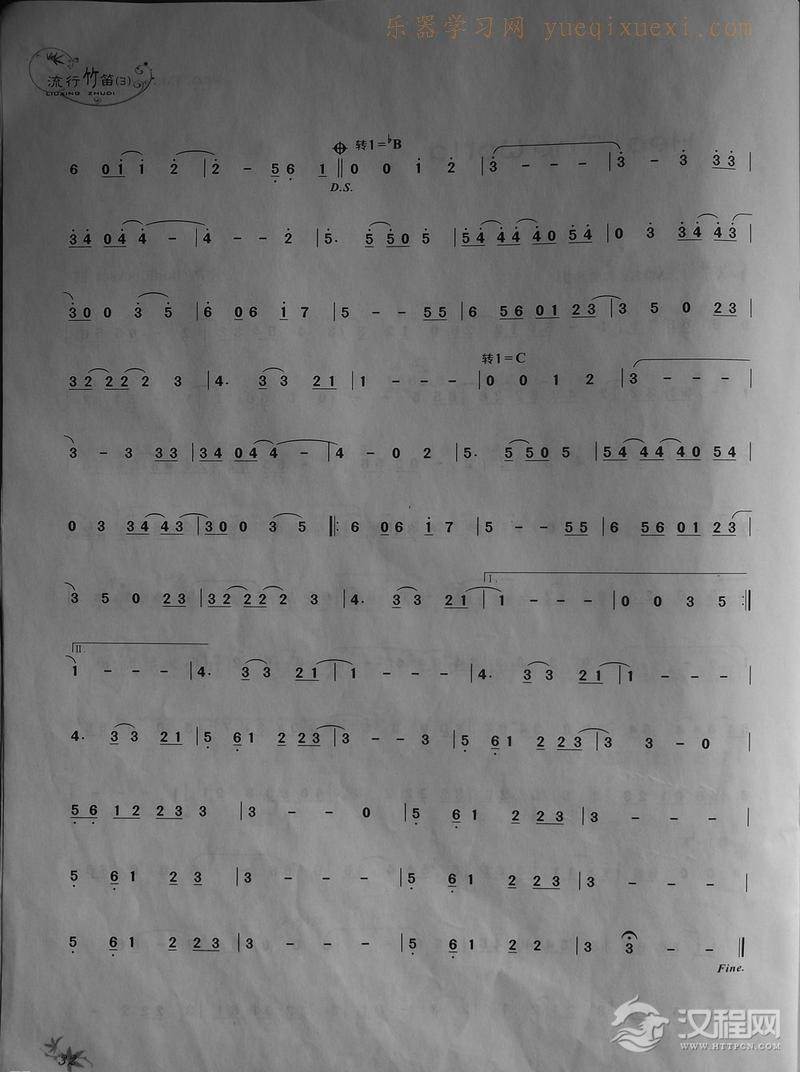 乐器学习网 yueqixuexi.com
流行竹笛(3)
LIUXING ZHUDI
转1=♭B
6 0i i 2 | 2 - 5 6 1 || 0 0 i 2 | 3 - - - | 3 - 3 33 |
D.S.
34 04 4 - | 4 - - 2 | 5. 5 50 5 | 54 44 40 54 | 0 3 34 43 |
30 0 3 5 | 6 06 i 7 | 5 - - 55 | 6 56 01 23 | 3 5 0 23 |
32 22 2 3 | 4. 3 3 21 | 1 - - - | 0 0 1 2 | 3 - - -
转1=C
3 - 3 33 | 34 04 4 - | 4 - 0 2 | 5. 5 50 5 | 54 44 40 54 |
0 3 34 43 | 30 0 3 5 ||: 6 06 i 7 | 5 - - 55 | 6 56 01 23 |
3 5 0 23 | 32 22 2 3 | 4. 3 3 21 | I. 1 - - - | 0 0 3 5 :||
II.
1 - - - | 4. 3 3 21 | 1 - - - | 4. 3 3 21 | 1 - - - |
4. 3 3 21 | 5 61 2 23 | 3 - - 3 | 5 61 2 23 | 3 3 - 0 |
56 12 23 3 | 3 - - 0 | 5 61 2 23 | 3 - - - |
5 61 2 23 | 3 - - - | 5 61 2 23 | 3 - - - |
5 61 2 23 | 3 - - - | 5 61 2 2 | 3 3 - - ||
Fine.
汉程网
WWW.HTTPCN.COM